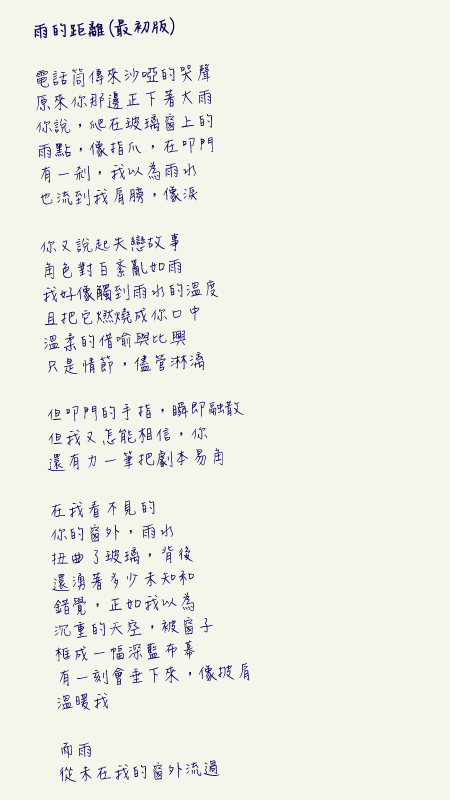 雨的距離(最初版)
電話筒傳來沙啞的哭聲
原來你那邊正下著大雨
你說，爬在玻璃窗上的
雨點，像指爪，在叩門
有一剎，我以為雨水
也流到我肩膀，像淚
你又說起失戀故事
角色對白紊亂如雨
我好像觸到雨水的溫度
且把它燃燒成你口中
溫柔的借喻與比興
只是情節，儘管淋漓
但叩門的手指，瞬即融散
但我又怎能相信，你
還有力一筆把劇本易角
在我看不見的
你的窗外，雨水
扭曲了玻璃，背後
還湧著多少未知和
錯覺，正如我以為
沉重的天空，被窗子
框成一幅深藍布幕
有一刻會垂下來，像披肩
溫暖我
而雨
從未在我的窗外流過